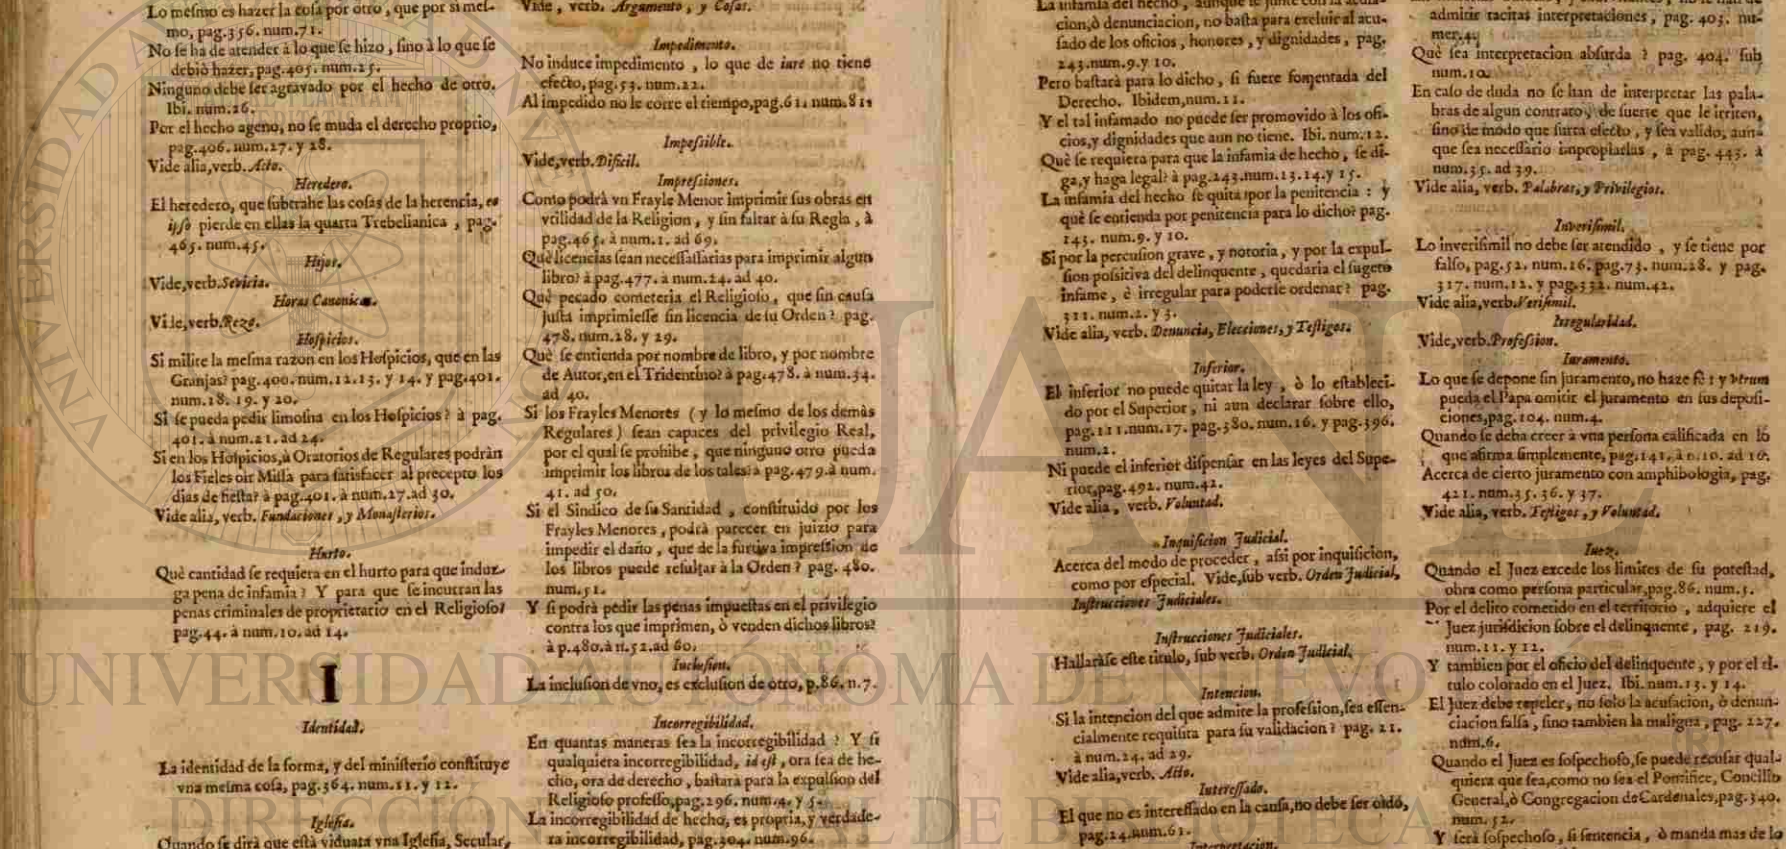 Lo mesmo es hazer la cosa por otro, que por si mes-
mo, pag.356. num.71.
No se ha de atender à lo que se hizo, sino à lo que se
debiò hazer, pag.405. num.25.
Ninguno debe ser agravado por el hecho de otro.
Ibi. num.26.
Por el hecho ageno, no se muda el derecho proprio,
pag.406. num.27. y 28.
Vide alia, verb. Acto.
Heredero.
El heredero, que subtrahe las cosas de la herencia, eo
ipso pierde en ellas la quarta Trebelianica, pag.
465. num.45.
Hijos.
Vide, verb. Sevicia.
Horas Canonicas.
Vide, verb. Rezo.
Hospicios.
Si milite la mesma razon en los Hospicios, que en las
Granjas? pag.400. num.12.13. y 14. y pag.401.
num.18. 19. y 20.
Si se pueda pedir limosna en los Hospicios? à pag.
401. à num.21. ad 24.
Si en los Hospicios, ù Oratorios de Regulares podràn
los Fieles oir Missa para satisfacer al precepto los
dias de fiesta? à pag.401. à num.27. ad 30.
Vide alia, verb. Fundaciones, y Monasterios.
Hurto.
Què cantidad se requiera en el hurto para que induz-
ga pena de infamia? Y para que se incurran las
penas criminales de proprietario en el Religioso?
pag.44. à num.10. ad 14.
I
Identidad.
La identidad de la forma, y del ministerio constituye
vna mesma cosa, pag.364. num.11. y 12.
Iglesia.
Quando se dirà que està viduata vna Iglesia, Secular,
Vide, verb. Argumento, y Cosas.
Impedimento.
No induce impedimento, lo que de iure no tiene
efecto, pag.53. num.22.
Al impedido no le corre el tiempo, pag.61. num.81.
Impossible.
Vide, verb. Dificil.
Impressiones.
Como podrà vn Frayle Menor imprimir sus obras en
vtilidad de la Religion, y sin faltar à su Regla, à
pag.465. à num.1. ad 69.
Què licencias sean necessarias para imprimir algun
libro? à pag.477. à num.24. ad 40.
Què pecado cometeria el Religioso, que sin causa
justa imprimiesse sin licencia de su Orden? pag.
478. num.28. y 29.
Què se entienda por nombre de libro, y por nombre
de Autor, en el Tridentino? à pag.478. à num.34.
ad 40.
Si los Frayles Menores (y lo mesmo de los demàs
Regulares) sean capaces del privilegio Real,
por el qual se prohibe, que ninguno otro pueda
imprimir los libros de los tales? à pag.479. à num.
41. ad 50.
Si el Sindico de su Santidad, constituido por los
Frayles Menores, podrà parecer en juizio para
impedir el daño, que de la furtiva impression de
los libros puede resultar à la Orden? pag. 480.
num.51.
Y si podrà pedir las penas impuestas en el privilegio
contra los que imprimen, ò venden dichos libros?
à p.480. à n.52. ad 60.
Inclusion.
La inclusion de vno, es exclusion de otro, p.86. n.7.
Incorregibilidad.
En quantas maneras sea la incorregibilidad? Y si
qualquiera incorregibilidad, id est, ora sea de he-
cho, ora de derecho, bastarà para la expulsion del
Religioso professo, pag.296. num.4. y 5.
La incorregibilidad de hecho, es propria, y verdade-
ra incorregibilidad, pag.304. num.96.
La infamia del hecho, aunque se junte con la acusa-
cion, ò denunciacion, no basta para excluir al acu-
sado de los oficios, honores, y dignidades, pag.
243. num.9. y 10.
Pero bastarà para lo dicho, si fuere fomentada del
Derecho. Ibidem, num.11.
Y el tal infamado no puede ser promovido à los ofi-
cios, y dignidades que aun no tiene. Ibi. num.12.
Què se requiera para que la infamia de hecho, se di-
ga, y haga legal? à pag.243. num.13.14. y 15.
La infamia del hecho se quita por la penitencia: y
què se entienda por penitencia para lo dicho? pag.
243. num.9. y 10.
Si por la percusion grave, y notoria, y por la expul-
sion positiva del delinquente, quedaria el sugeto
infame, è irregular para poderse ordenar? pag.
311. num.2. y 3.
Vide alia, verb. Denuncia, Elecciones, y Testigos.
Inferior.
El inferior no puede quitar la ley, ò lo estableci-
do por el Superior, ni aun declarar sobre ello,
pag.111. num.17. pag.380. num.16. y pag.396.
num.2.
Ni puede el inferior dispensar en las leyes del Supe-
rior, pag.492. num.42.
Vide alia, verb. Voluntad.
Inquisicion Judicial.
Acerca del modo de proceder, assi por inquisicion,
como por especial. Vide, sub verb. Orden Judicial,
Instrucciones Judiciales.
Instrucciones Judiciales.
Hallaràse este titulo, sub verb. Orden Judicial.
Intencion.
Si la intencion del que admite la profession, sea essen-
cialmente requisita para su validacion? pag. 21.
à num.24. ad 29.
Vide alia, verb. Acto.
Interessado.
El que no es interessado en la causa, no debe ser oìdo,
pag.24. num.61.
Interpretacion.
admitir tacitas interpretaciones, pag. 403. nu-
mer.4.
Què sea interpretacion absurda? pag. 404. sub
num.10.
En caso de duda no se han de interpretar las pala-
bras de algun contrato, de suerte que le irriten,
sino de modo que surta efecto, y sea valido, aun-
que sea necessario impropiarlas, à pag. 443. à
num.35. ad 39.
Vide alia, verb. Palabras, y Privilegios.
Inverisimil.
Lo inverisimil no debe ser atendido, y se tiene por
falso, pag.52. num.16. pag.73. num.28. y pag.
317. num.12. y pag.332. num.42.
Vide alia, verb. Verisimil.
Irregularidad.
Vide, verb. Profession.
Iuramento.
Lo que se depone sin juramento, no haze fè: y vtrum
pueda el Papa omitir el juramento en sus deposi-
ciones, pag.104. num.4.
Quando se deba creer à vna persona calificada en lo
que afirma simplemente, pag.141. à n.10. ad 16.
Acerca de cierto juramento con amphibologia, pag.
421. num.35. 36. y 37.
Vide alia, verb. Testigos, y Voluntad.
Iuez.
Quando el Juez excede los limites de su potestad,
obra como persona particular, pag.86. num.5.
Por el delito cometido en el territorio, adquiere el
Juez jurisdicion sobre el delinquente, pag. 219.
num.11. y 12.
Y tambien por el oficio del delinquente, y por el ti-
tulo colorado en el Juez. Ibi. num.13. y 14.
El Juez debe repeler, no solo la acusacion, ò denun-
ciacion falsa, sino tambien la maligna, pag. 227.
num.6.
Quando el Juez es sospechoso, se puede recusar qual-
quiera que sea, como no sea el Pontifice, Concilio
General, ò Congregacion de Cardenales, pag.340.
num.52.
Y serà sospechoso, si sentencia, ò manda mas de lo
UANL
UNIVERSIDAD AUTÓNOMA DE NUEVO
DIRECCIÓN DE BIBLIOTECA